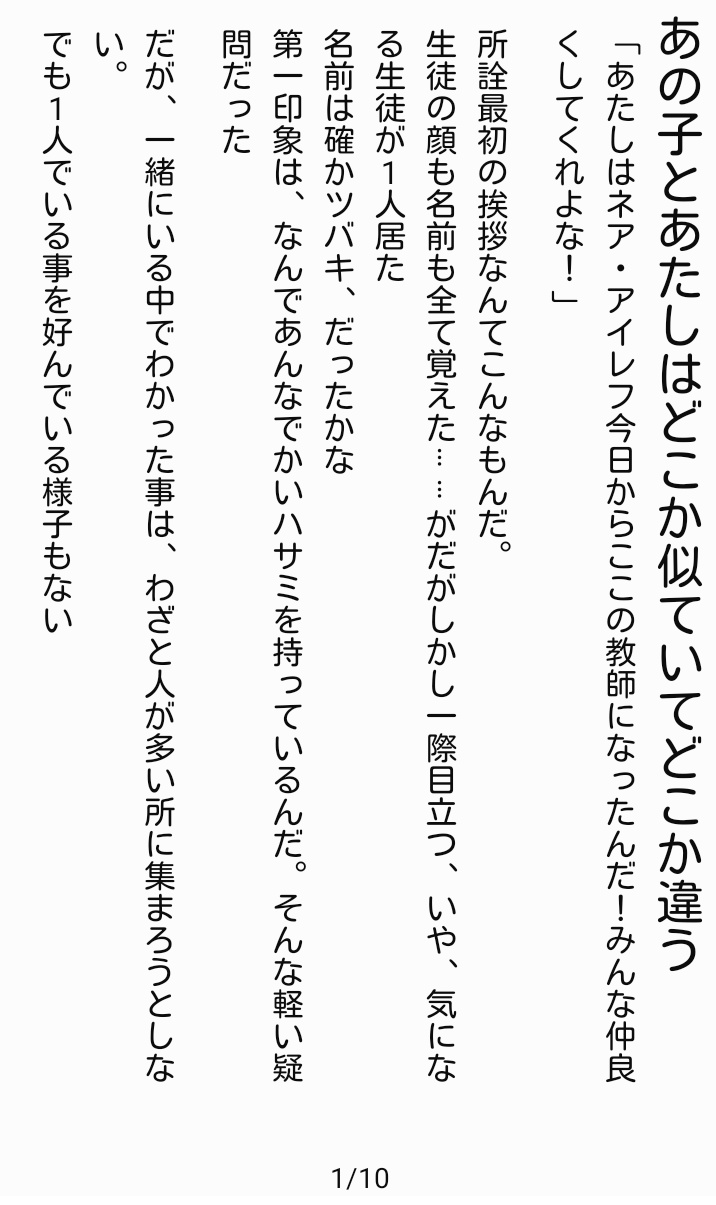 あの子とあたしはどこか似ていてどこか違う
「あたしはネア・アイレフ今日からここの教師になったんだ！みんな仲良
くしてくれよな！」
所詮最初の挨拶なんてこんなもんだ。
生徒の顔も名前も全て覚えた……がだがしかし一際目立つ、いや、気にな
る生徒が1人居た
名前は確かツバキ、だったかな
第一印象は、なんであんなでかいハサミを持っているんだ。そんな軽い疑
問だった
だが、一緒にいる中でわかった事は、わざと人が多い所に集まろうとしな
い。
でも1人でいる事を好んでいる様子もない
1/10